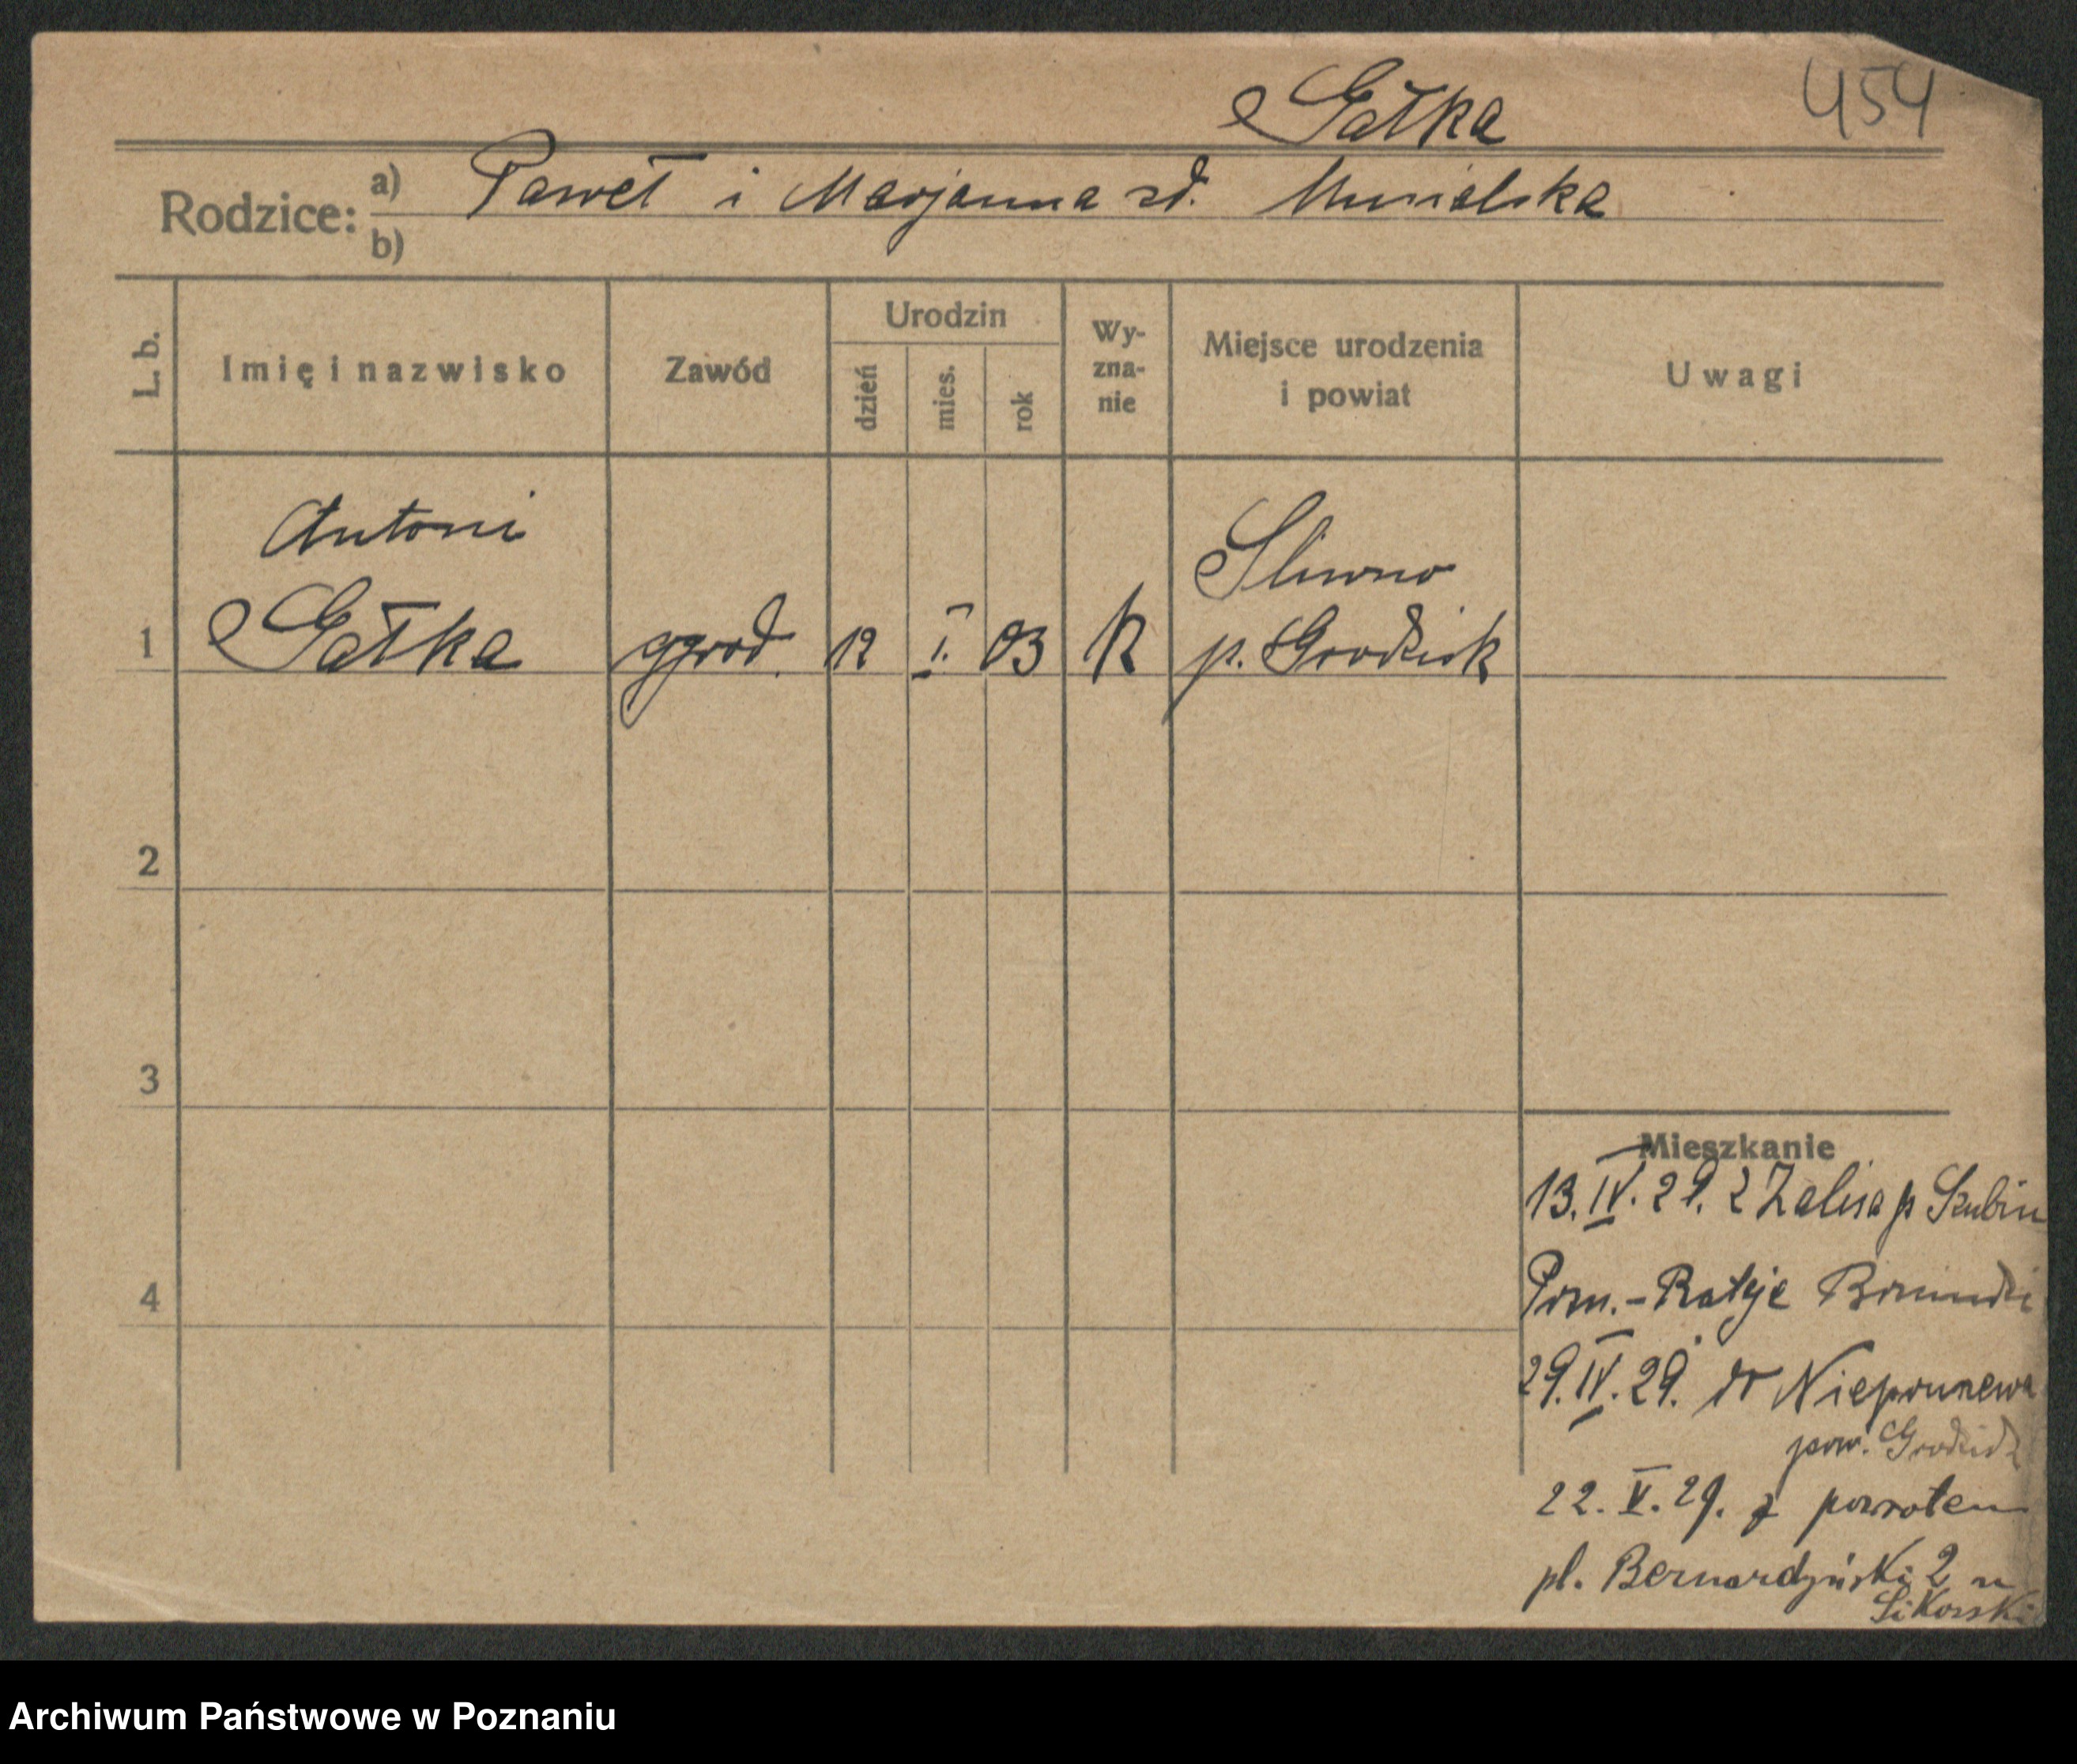 Gałka 454
Rodzice: a) Paweł i Marjanna zd. Musielska
b)
L. b. Imię i nazwisko Zawód Urodzin dzień mies. rok Wy- zna- nie Miejsce urodzenia i powiat Uwagi
Antoni Sliwno
1 Gałka ogrod. 12 I. 03 K p. Grodzisk
2
3
Mieszkanie
13. IV. 29. z Zalesia p Szubin
4 Pozn.-Rataje
29. IV. 29. do Niepruszewa
pow. Grodzisk
22. V. 29. z powrotem
pl. Bernardyński 2 u
Sikorski
Archiwum Państwowe w Poznaniu